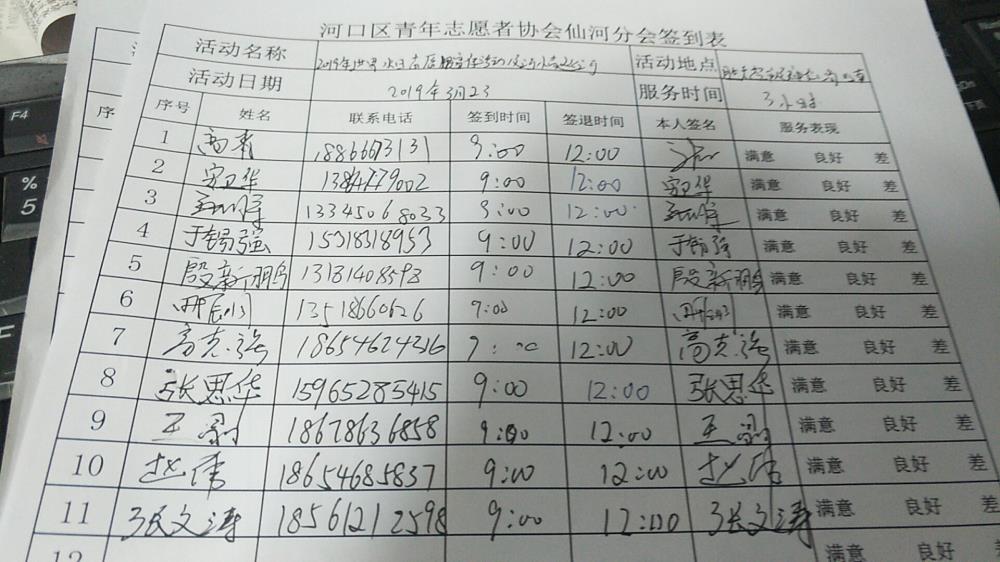 河口区青年志愿者协会仙河分会签到表
活动名称 2019年世界水日 活动地点
活动日期 2019年3月23 服务时间 3小时
序号 姓名 联系电话 签到时间 签退时间 本人签名 服务表现
1 高 9:00 12:00 满意 良好 差
2 华 13847779002 9:00 12:00 华 满意 良好 差
3 13345068033 9:00 12:00 满意 良好 差
4 于锡强 15318318953 9:00 12:00 于锡强 满意 良好 差
5 殷新鹏 13181408593 9:00 12:00 殷新鹏 满意 良好 差
6 13518660626 9:00 12:00 满意 良好 差
7 高克强 18654624316 12:00 高克强 满意 良好 差
8 张思华 15965285415 9:00 12:00 张思华 满意 良好 差
9 王 18678636858 9:00 12:00 王 满意 良好 差
10 赵伟 18654685837 9:00 12:00 赵伟 满意 良好 差
11 张文涛 18561212598 9:00 12:00 张文涛 满意 良好 差
12 满意 良好 差
F4
%
5